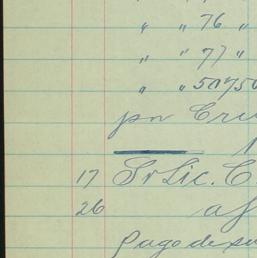 " " 76 "
" " 77 "
" " 50750
por Cru
17 Sr Lic. C
26 af
Pago de su